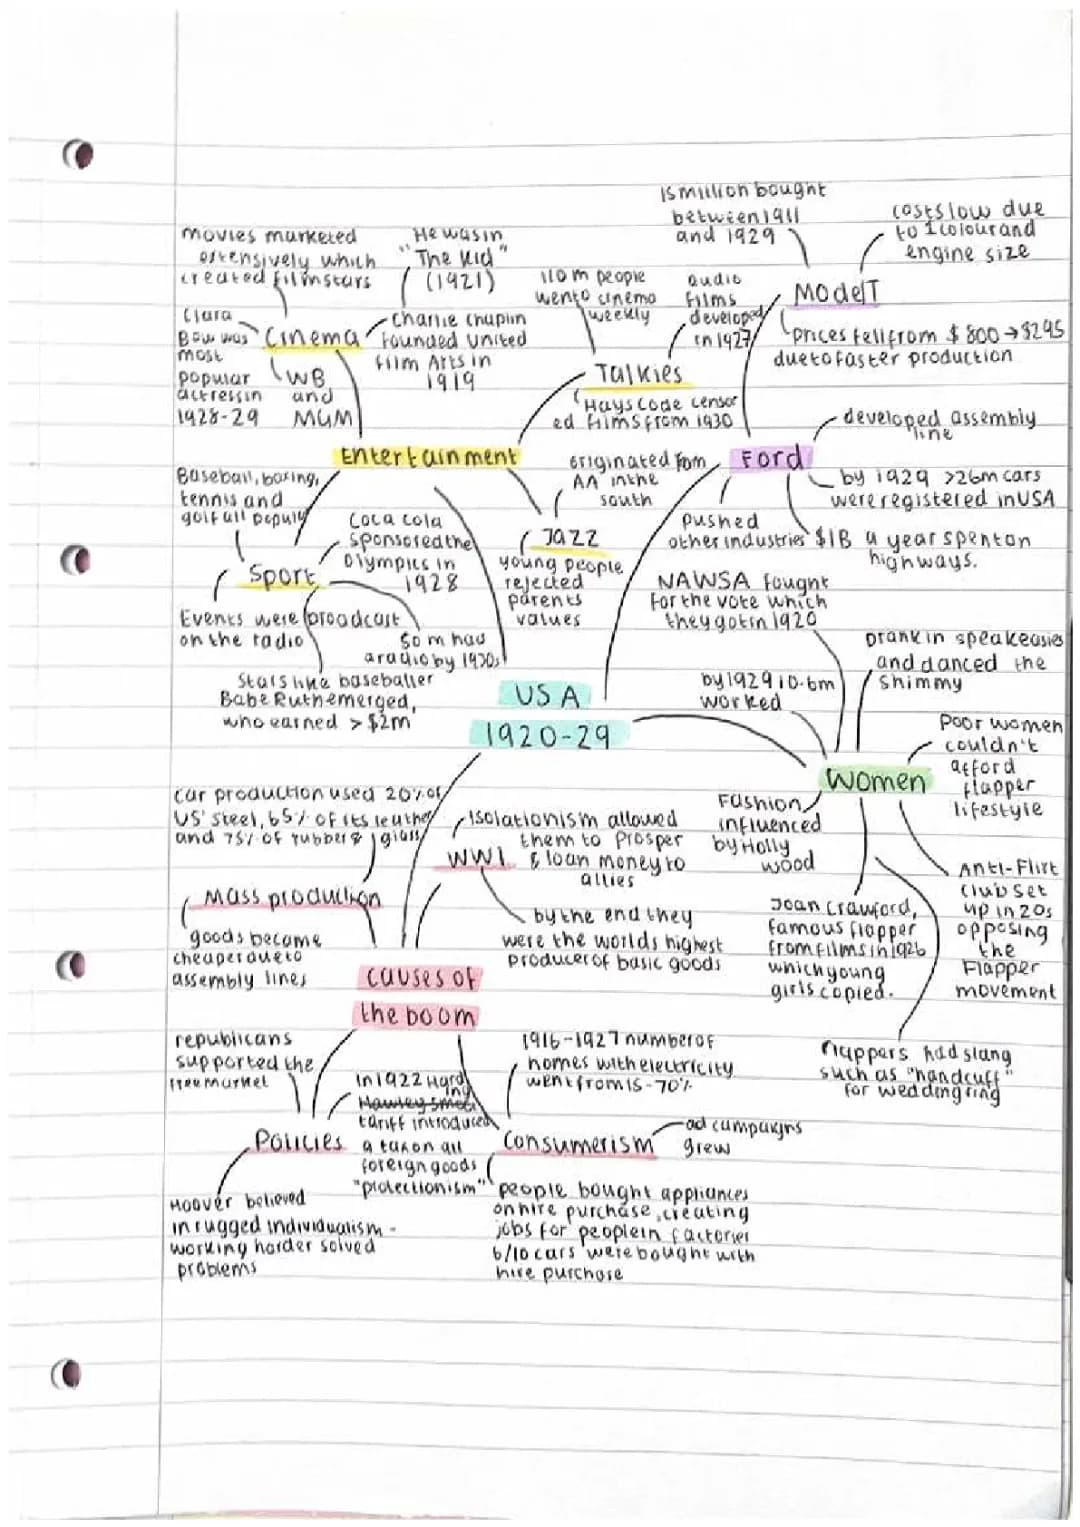 15 million bought
between 1911
and 1929
costs low due
to 1 colour and
engine size
Model T
Prices fell from $800 → $295
due to faster production
movies marketed
extensively which
created filmstars
He was in
"The Kid"
(1921)
Clara
Bow was
most
popular
actress in
1928-29
Cinema
Charlie Chaplin
founded United
film Arts in
1919
WB
and
MGM
110m people
went o cinema
weekly
audio
films
developed
in 1927
Talkies
Hays Code censor
ed films from 1930
Entertainment
Ford
developed assembly
line
by 1929 >26m cars
were registered in USA
pushed
other industries
$1B a year spent on
highways.
Baseball, boxing,
tennis and
golf all populr
Coca cola
sponsored the
Olympics in
1928
Sport
Events were broadcast
on the radio
50m had
a radio by 1930s
Stars like baseballer
Babe Ruth emerged,
who earned > $2m
originated from
AA in the
south
Jazz
young people
rejected
parents
values
USA
1920-29
NAWSA fought
for the vote which
they got in 1920
by 1929 10.6m
worked
Drank in speakeasies
and danced the
shimmy
Women
Poor women
couldn't
afford
flapper
lifestyle
Fashion
influenced
by Holly
wood
Joan Crawford,
famous flapper
from films in 1926
which young
girls copied.
Anti-Flirt
club set
up in 20s
opposing
the
Flapper
movement
flappers had slang
such as "handcuff"
for wedding ring
car production used 20% of
US' steel, 65% of its leather
and 75% of rubber & glass
Mass production
goods became
cheaper due to
assembly lines
isolationism allowed
them to prosper
& loan money to
allies
WW1
by the end they
were the worlds highest
producer of basic goods
causes of
the boom
republicans
supported the
free market
Policies
Hoover believed
in rugged individualism -
working harder solved
problems
in 1922 Hard
ing
Hawley Smoot
tariff introduced
a tax on all
foreign goods
"protectionism"
1916-1927 number of
homes with electricity
went from 15-70%
Consumerism
ad campaigns
grew
people bought appliances
on hire purchase, creating
jobs for people in factories
6/10 cars were bought with
hire purchase